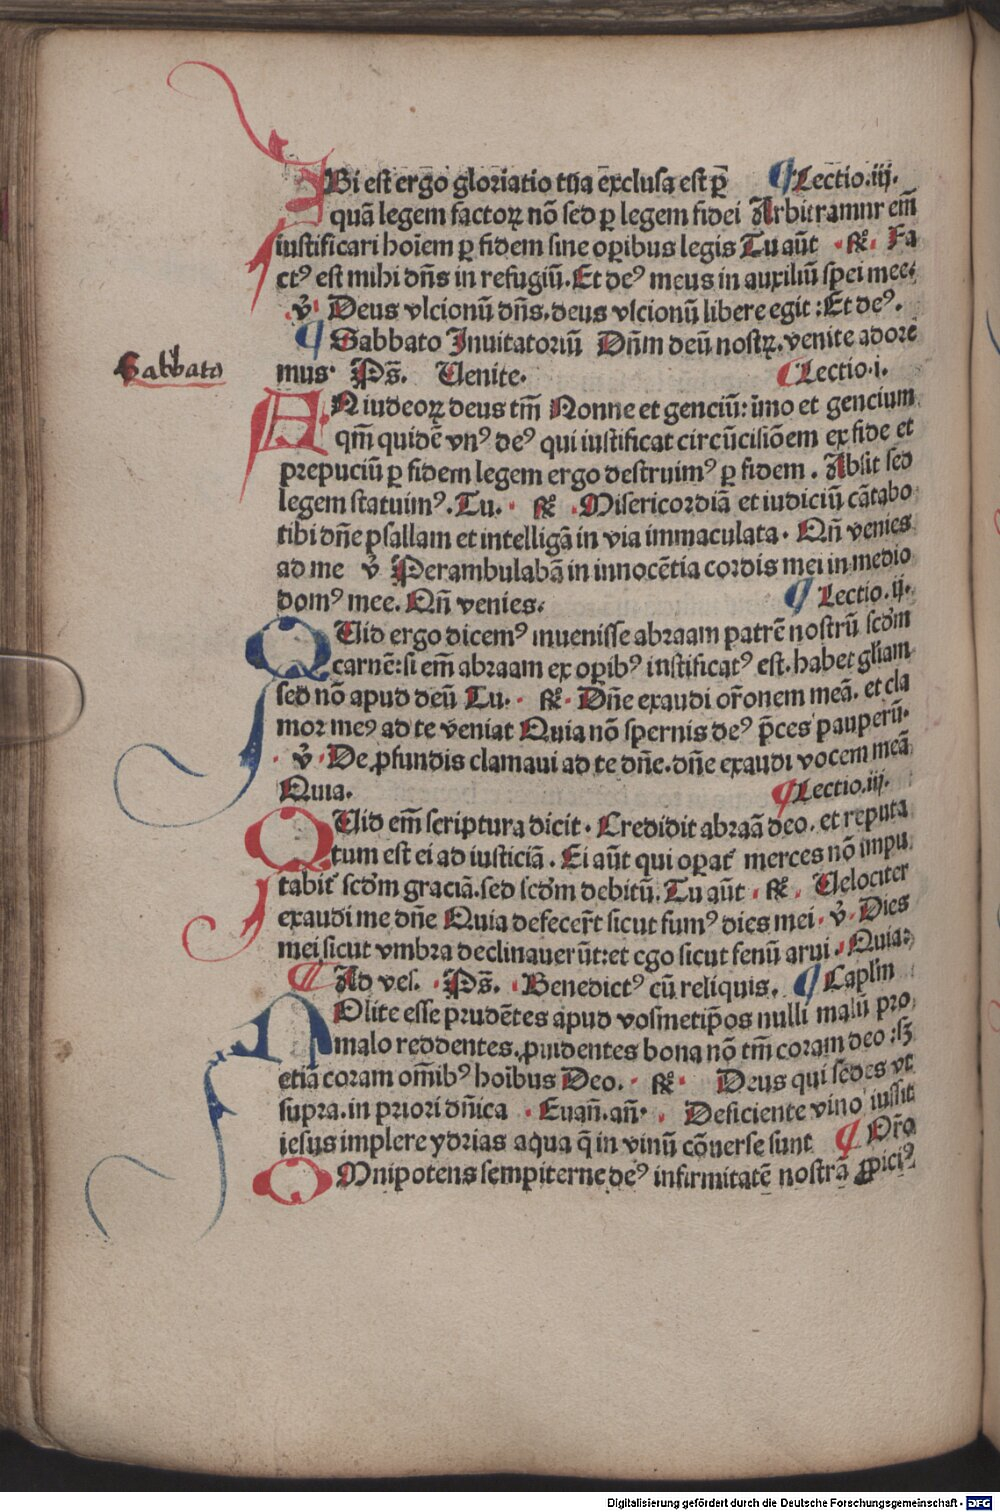 VBi est ergo gloriatio tua exclusa est ꝑ ¶Lectio.iij.
quā legem factoꝝ nō sed ꝑ legem fidei Arbitramur em̄
iustificari hoīem ꝑ fidem sine oꝑibus legis Tu aūt ℟. Fa
ctꝰ est mihi dn̄s in refugiū. Et deꝰ meus in auxiliū spei mee:
℣ Deus vlcionū dn̄s. deus vlcionū libere egit: Et deꝰ.
¶ Sabbato Inuitatoriū Dn̄m deū nostꝝ. venite adore
Sabbato
mus. Ps̄. Uenite. ¶Lectio.i.
AN iudeoꝝ deus tm̄ Nonne et genciū: īmo et gencium
qm̄ quidē vnꝰ deꝰ qui iustificat circūcisiōem ex fide et
prepuciū ꝑ fidem legem ergo destruimꝰ ꝑ fidem. Absit sed
legem statuimꝰ. Tu. ℟. Misericordiā et iudiciū cātabo
tibi dn̄e psallam et intelligā in via immaculata. Qn̄ venies
ad me ℣ Perambulabā in innocētia cordis mei in medio
domꝰ mee. Qn̄ venies. ¶ Lectio.ij.
QUid ergo dicemꝰ inuenisse abraam patrē nostrū scd̄m
carnē: si em̄ abraam ex oꝑibꝰ iustificatꝰ est. habet gl̄iam
sed nō apud deū Tu. ℟. Dn̄e exaudi or̄onem meā. et cla
mor meꝰ ad te veniat Quia nō spernis deꝰ p̄ces pauperū.
℣. De ꝓfundis clamaui ad te dn̄e. dn̄e exaudi vocem meā
Quia. ¶Lectio.iij.
QUid em̄ scriptura dicit. Credidit abraā deo. et reputa
tum est ei ad iusticiā. Ei aūt qui oꝑat᷑ merces nō impu
tabit᷑ scd̄m graciā. sed scd̄m debitū. Tu aūt. ℟. Uelociter
exaudi me dn̄e Quia defecer̄t sicut fumꝰ dies mei. ℣. Dies
mei sicut vmbra declinauerūt: et ego sicut fenū arui. Quia:
¶ Ad ves. Ps̄. Benedictꝰ cū reliquis. ¶ Capl̄m
NOlite esse prudētes apud vosmetip̄os nulli malū pro
malo reddentes. ꝓuidentes bona nō tm̄ coram deo: sꝫ
etiā coram om̄ibꝰ hoībus Deo. ℟. Deus qui sedes vt
supra. in priori dn̄ica. Euan̄. an̄. Deficiente vino iussit
iesus implere ydrias aqua q̄ in vinū cōuerse sunt ¶ Or̄o
OMnipotens sempiterne deꝰ infirmitatē nostrā ꝓpiciꝰ
Digitalisierung gefördert durch die Deutsche Forschungsgemeinschaft - DFG